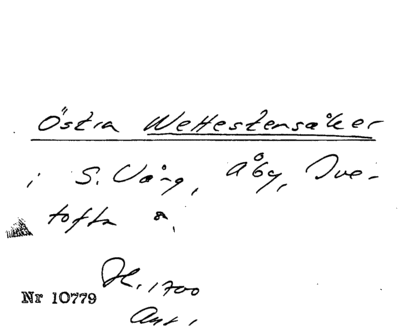 Östra Wettestensåker
i S. Vång, Åby, Ive-
tofta s.
Jk. 1700
Nr 10779
Ant.